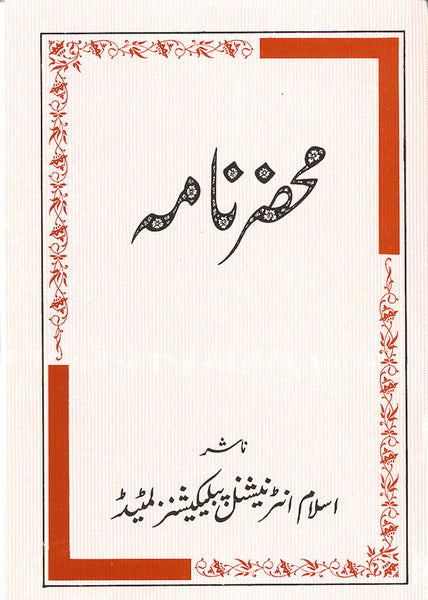 محضر نامہ
ناشر
اسلام انٹرنیشنل پبلیکیشنز لمیٹیڈ